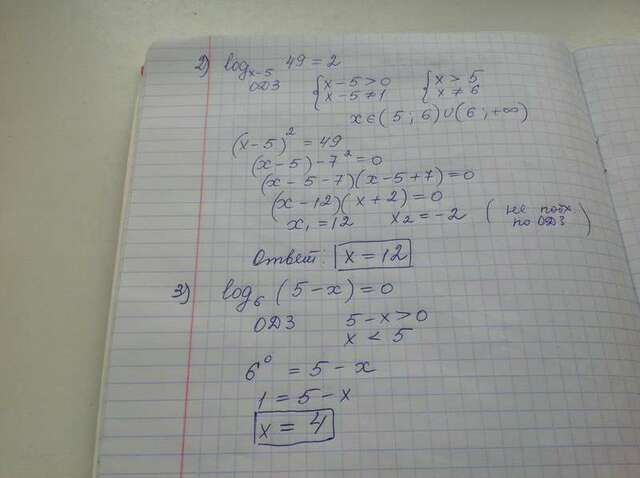 2) log_{x-5} 49 = 2
ОДЗ { x - 5 > 0 { x > 5
{ x - 5 ≠ 1 { x ≠ 6
x ∈ (5; 6) ∪ (6; +∞)
(x - 5)² = 49
(x - 5) - 7² = 0
(x - 5 - 7)(x - 5 + 7) = 0
(x - 12)(x + 2) = 0
x₁ = 12 x₂ = -2 (не подх. по ОДЗ)
Ответ: x = 12
3) log₆ (5 - x) = 0
ОДЗ 5 - x > 0
x < 5
6⁰ = 5 - x
1 = 5 - x
x = 4